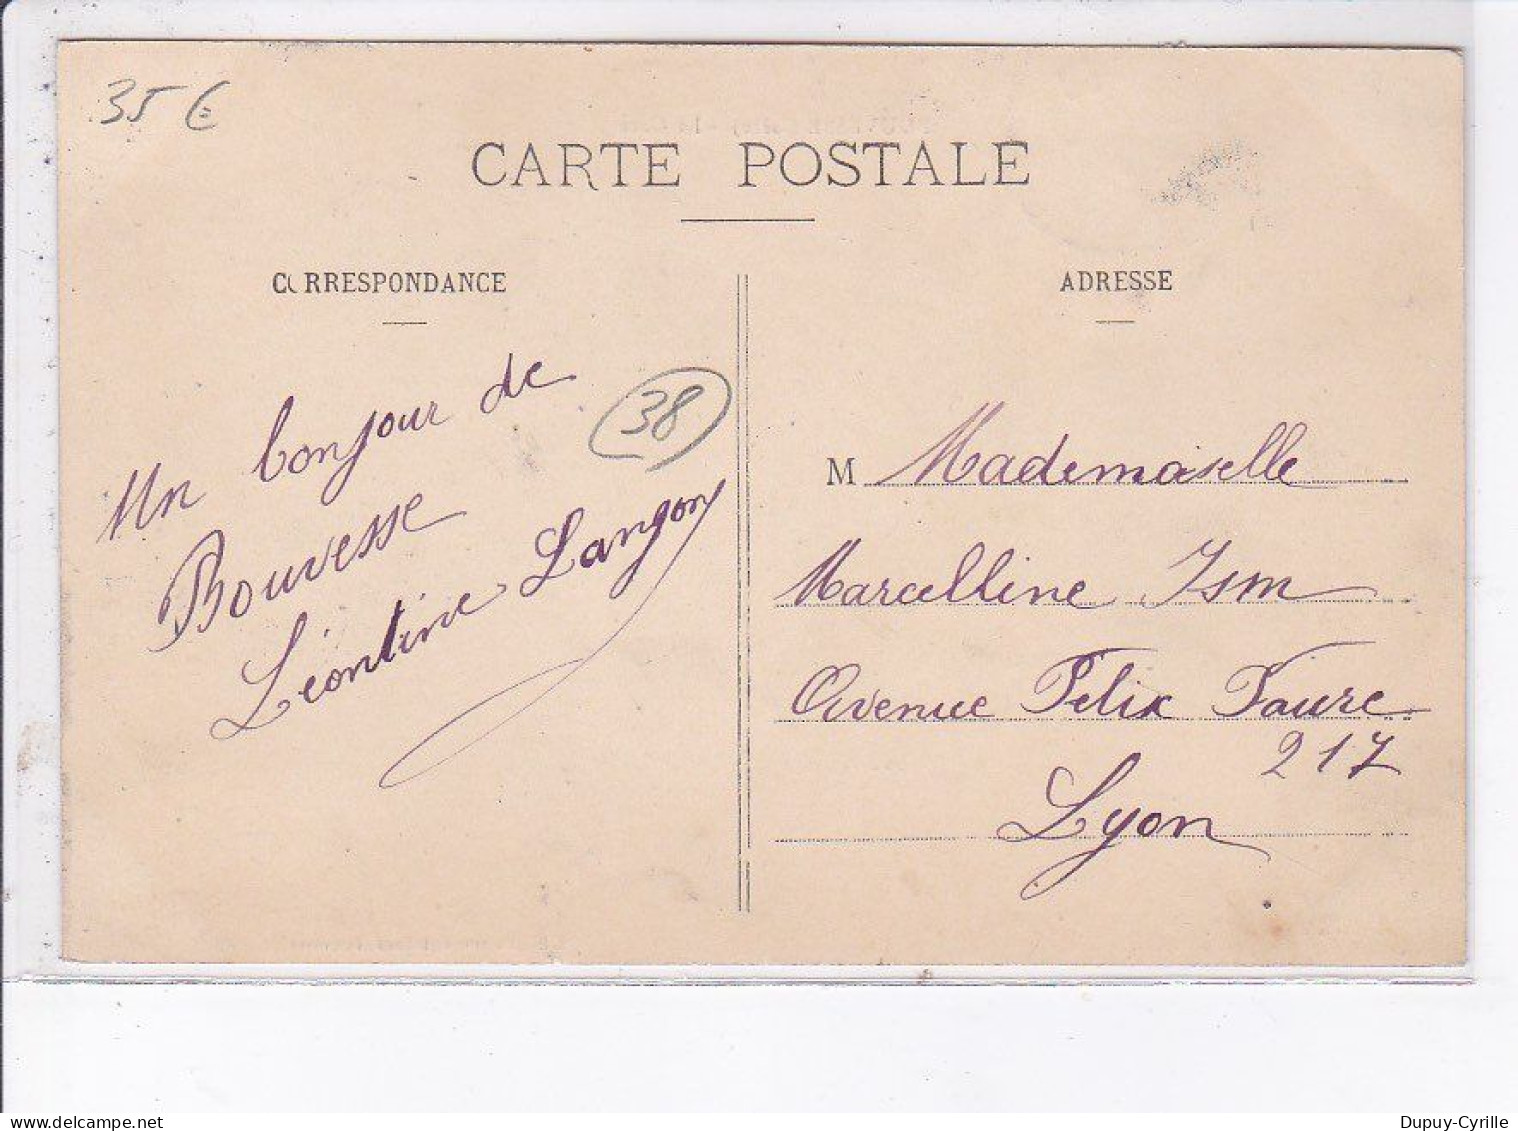 35 €
CARTE POSTALE
CORRESPONDANCE
Un bonjour de
Bouvesse
Léontine Langon
38
ADRESSE
M Mademoiselle
Marcelline Ism
Avenue Félix Faure
217
Lyon
delcampe.net
Dupuy-Cyrille